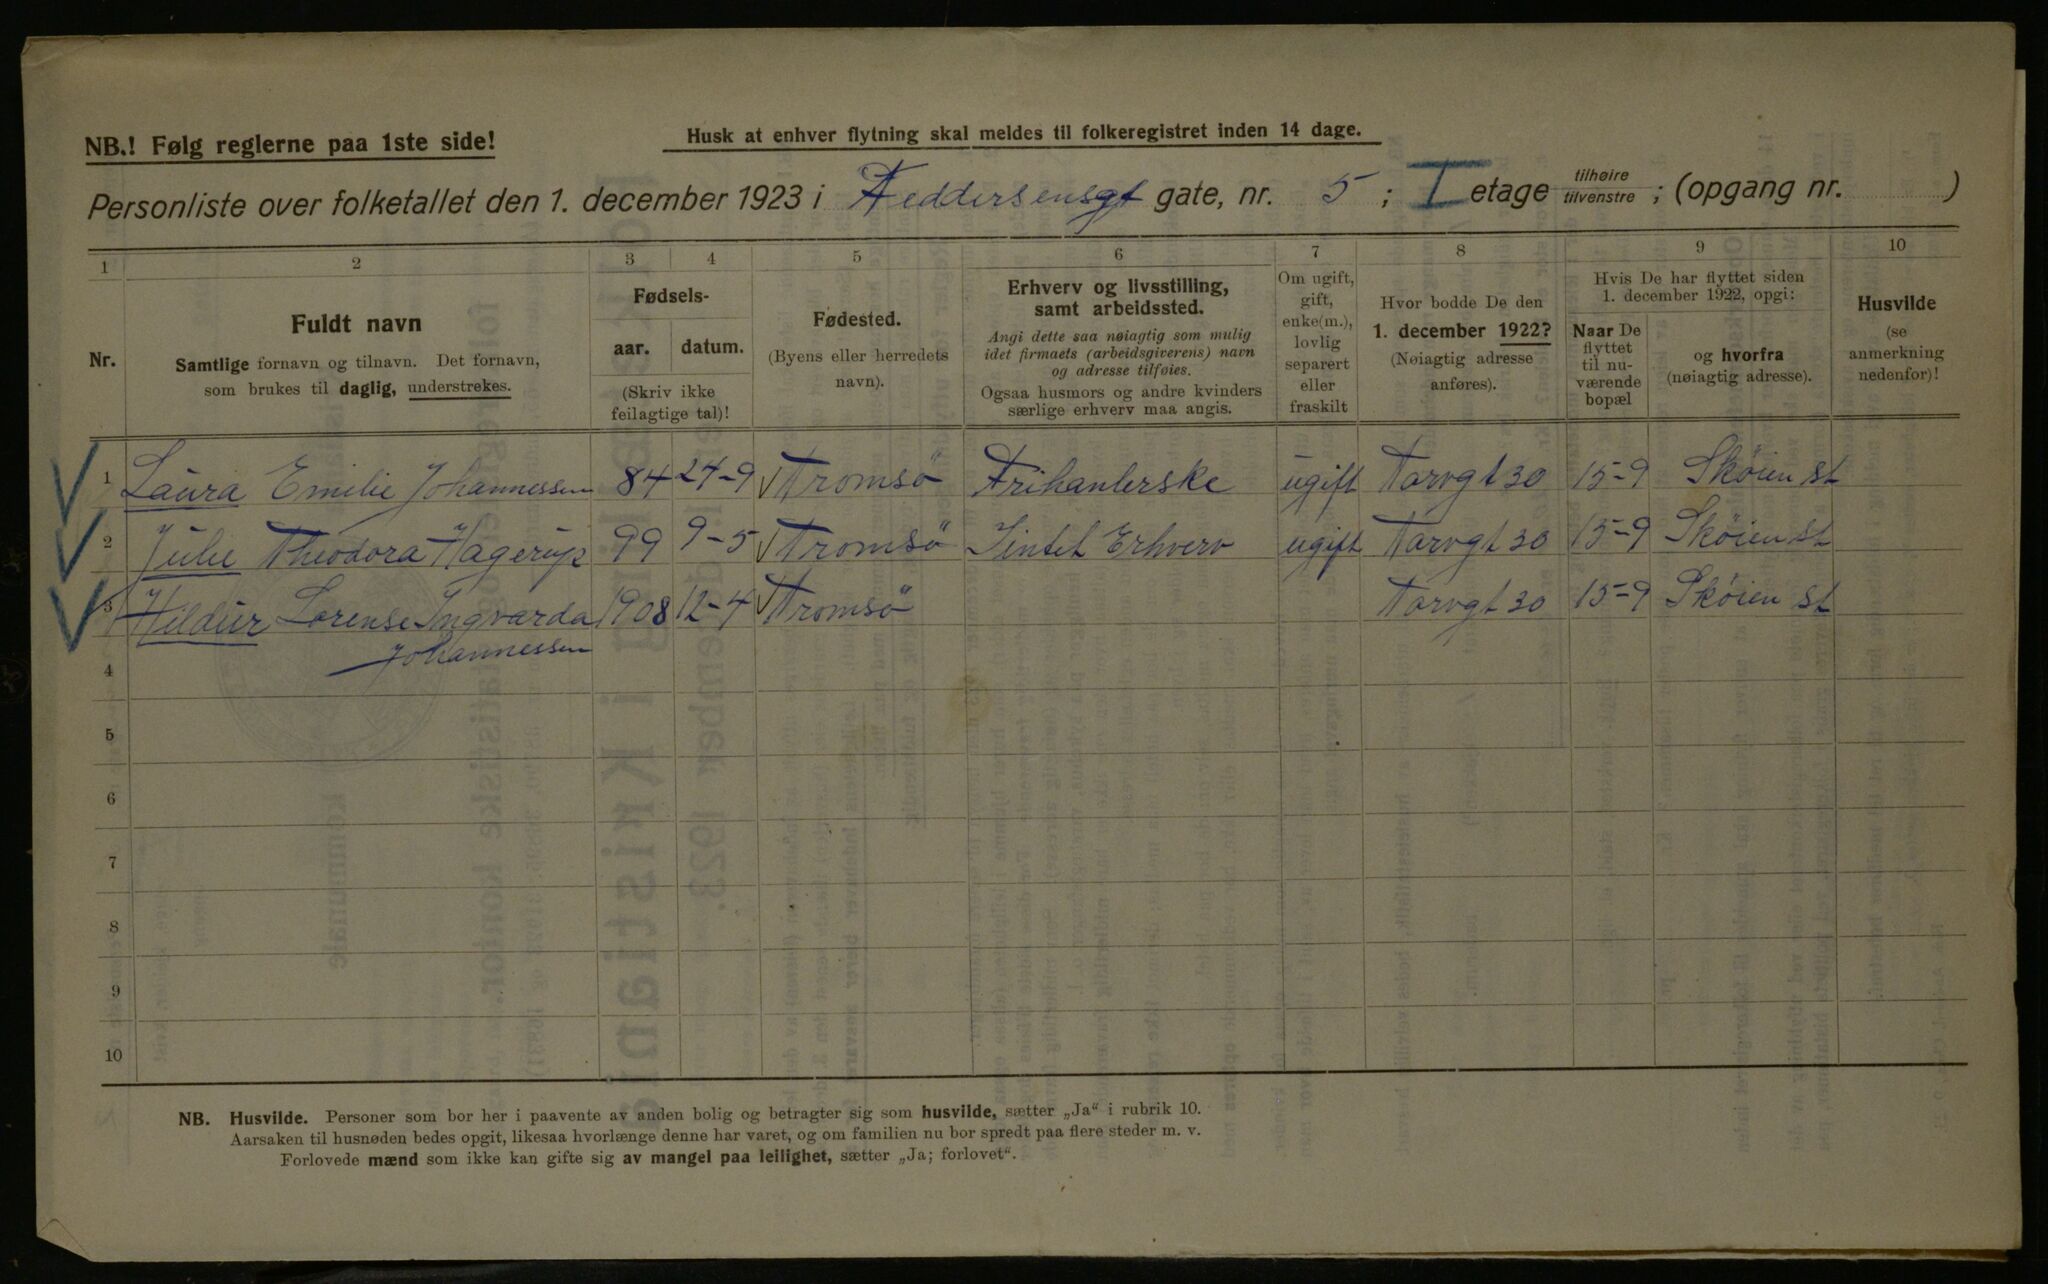 NB.! Følg reglerne paa 1ste side!
Husk at enhver flytning skal meldes til folkeregistret inden 14 dage.
Personliste over folketallet den 1. december 1923 i Feddersensgt gate, nr. 5; I etage tilhøire tilvenstre; (opgang nr. )
1 2 3 4 5 6 7 8 9 10
Nr.
Fuldt navn
Samtlige fornavn og tilnavn. Det fornavn,
som brukes til daglig, understrekes.
Fødsels-
aar. datum.
(Skriv ikke
feilagtige tal)!
Fødested.
(Byens eller herredets
navn).
Erhverv og livsstilling,
samt arbeidssted.
Angi dette saa nøiagtig som mulig
idet firmaets (arbeidsgiverens) navn
og adresse tilføies.
Ogsaa husmors og andre kvinders
særlige erhverv maa angis.
Om ugift,
gift,
enke(m.),
lovlig
separert
eller
fraskilt
Hvor bodde De den
1. december 1922?
(Nøiagtig adresse
anføres).
Hvis De har flyttet siden
1. december 1922, opgi:
Naar De
flyttet
til nu-
værende
bopæl
og hvorfra
(nøiagtig adresse).
Husvilde
(se
anmerkning
nedenfor)!
1 Laura Emilie Johannessen 84 24-9 Tromsö Frihanlerske ugift Torvgt 30 15-9 Skøien st
2 Julie Theodora Hagerup 99 9-5 Tromsö Intet Erhverv ugift Torvgt 30 15-9 Skøien st
3 Hildur Lorense Ingvarda 1908 12-4 Tromsö Torvgt 30 15-9 Skøien st
Johannessen
4
5
6
7
8
9
10
NB. Husvilde. Personer som bor her i paavente av anden bolig og betragter sig som husvilde, sætter „Ja“ i rubrik 10.
Aarsaken til husnøden bedes opgit, likesaa hvorlænge denne har varet, og om familien nu bor spredt paa flere steder m. v.
Forlovede mænd som ikke kan gifte sig av mangel paa leilighet, sætter „Ja; forlovet“.